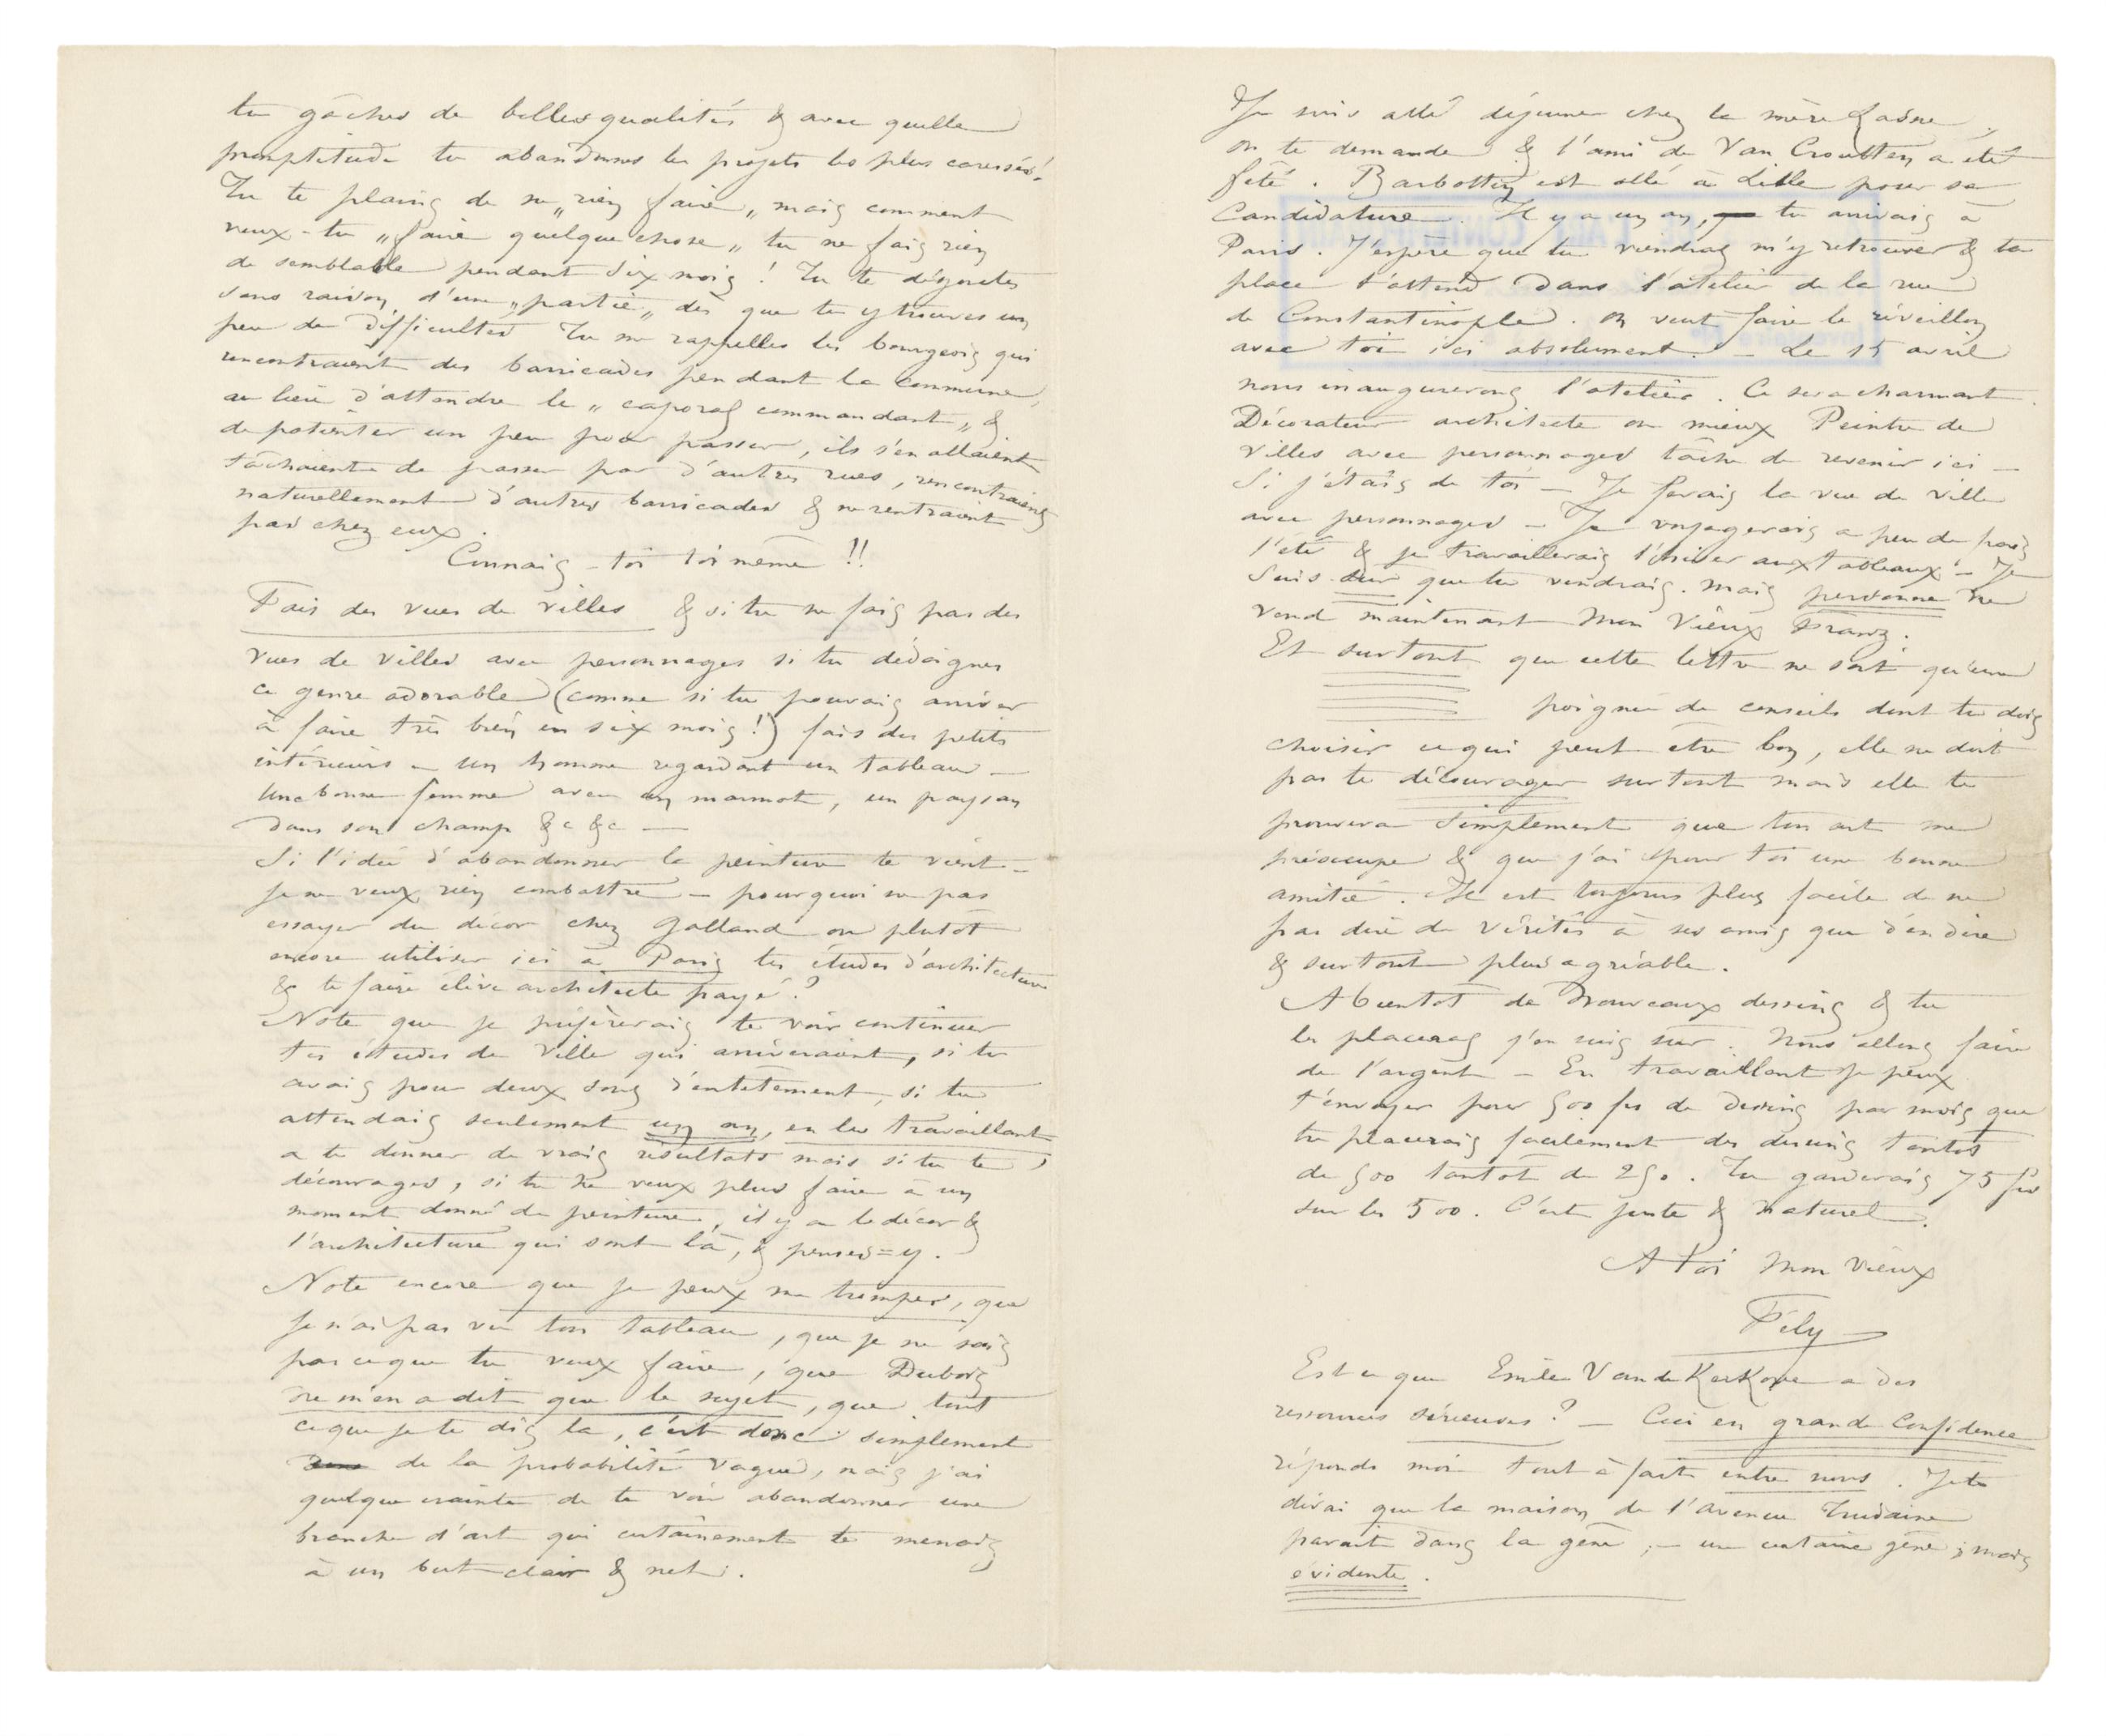 tu gâches de belles qualités & avec quelle
promptitude tu abandonnes les projets les plus caressés!
Tu te plains de ne „rien faire„ mais comment
veux-tu „faire quelque chose„ tu ne fais rien
de semblable pendant six mois! Tu te dégoutes
sans raison d'une „partie„ dès que tu y trouves un
peu de difficultés Tu me rappelles les bourgeois qui
rencontraient des barricades pendant la commune,
au lieu d'attendre le „caporal commandant„ &
de patienter un peu pour passer, ils s'en allaient
tâchaient de passer par d'autres rues, rencontraient
naturellement d'autres barricades & ne rentraient
pas chez eux.
Connais-toi toi même!!
Fais des vues de villes & si tu ne fais pas des
vues de villes avec personnages si tu dédaignes
ce genre adorable (comme si tu pouvais arriver
à faire très bien en six mois!) fais des petits
intérieurs – un homme regardant un tableau –
Une bonne femme avec un marmot, un paysan
dans son champ &c &c —
Si l'idée d'abandonner la peinture te vient –
je ne veux rien combattre – pourquoi ne pas
essayer du décor chez Galland ou plutôt
encore utiliser ici à Paris tes études d'architecture
& te faire élève architecte payé?
Note que je préfèrerais te voir continuer
tes études de Ville qui arriveraient, si tu
avais pour deux sous d'entêtement, si tu
attendais seulement un an, en les travaillant
a te donner de vrais résultats mais si tu te
décourages, si tu ne veux plus faire à un
moment donné de peinture, il y a le décor &
l'architecture qui sont là, & penses=y.
Note encore que je peux me tromper, que
je n'ai pas vu ton tableau, que je ne sais
pas ce que tu veux faire, que Dubois
ne m'en a dit que le sujet, que tout
ce que je te dis la, c'est donc simplement
de la probabilité vague, mais j'ai
quelque crainte de te voir abandonner une
branche d'art qui certainement te menait
à un but clair & net.
Je suis allé déjeuner chez la mère
on te demande & l'ami de Van Croutten a été
fêté. Barbottin est allé à Lille pour sa
Candidature. Il y a un an, tu arrivais à
Paris. J'espère que tu viendras m'y retrouver & ta
place t'attend dans l'atelier de la rue
de Constantinople. On veut faire le réveillon
avec toi ici absolument. – Le 15 avril
nous inaugurerons l'atelier. Ce sera charmant.
Décorateur architecte ou mieux Peintre de
villes avec personnages tâche de revenir ici –
Si j'étais de toi – Je ferais la vue de ville
avec personnages – Je voyagerais a peu de frais
l'été & je travaillerais l'hiver aux tableaux – Je
suis sûr que tu vendrais. Mais personne ne
vend maintenant Mon Vieux Franz.
Et surtout que cette lettre ne soit qu'une
poignée de conseils dont tu dois
choisir ce qui peut être bon, elle ne doit
pas te décourager surtout mais elle te
prouvera simplement que ton art me
préoccupe & que j'ai pour toi une bonne
amitié. Il est toujours plus facile de ne
pas dire de vérités à ses amis que d'en dire
& surtout plus agréable.
A bientôt de Nouveaux dessins & tu
les placeras j'en suis sûr. Nous allons faire
de l'argent – En travaillant je peux
t'envoyer pour 500 frs de dessins par mois que
tu placerais facilement des dessins tantôt
de 500 tantôt de 250. Tu garderais 75 frs
sur les 500. C'est juste & naturel.
A toi Mon Vieux
Fély
Est ce que Emile Van de Kerkove a des
ressources sérieuses? – Ceci en grande Confidence
réponds moi tout à fait entre nous. Je te
dirai que la maison de l'avenue Trudaine
parait dans la gêne, – une certaine gêne; mais
évidente.